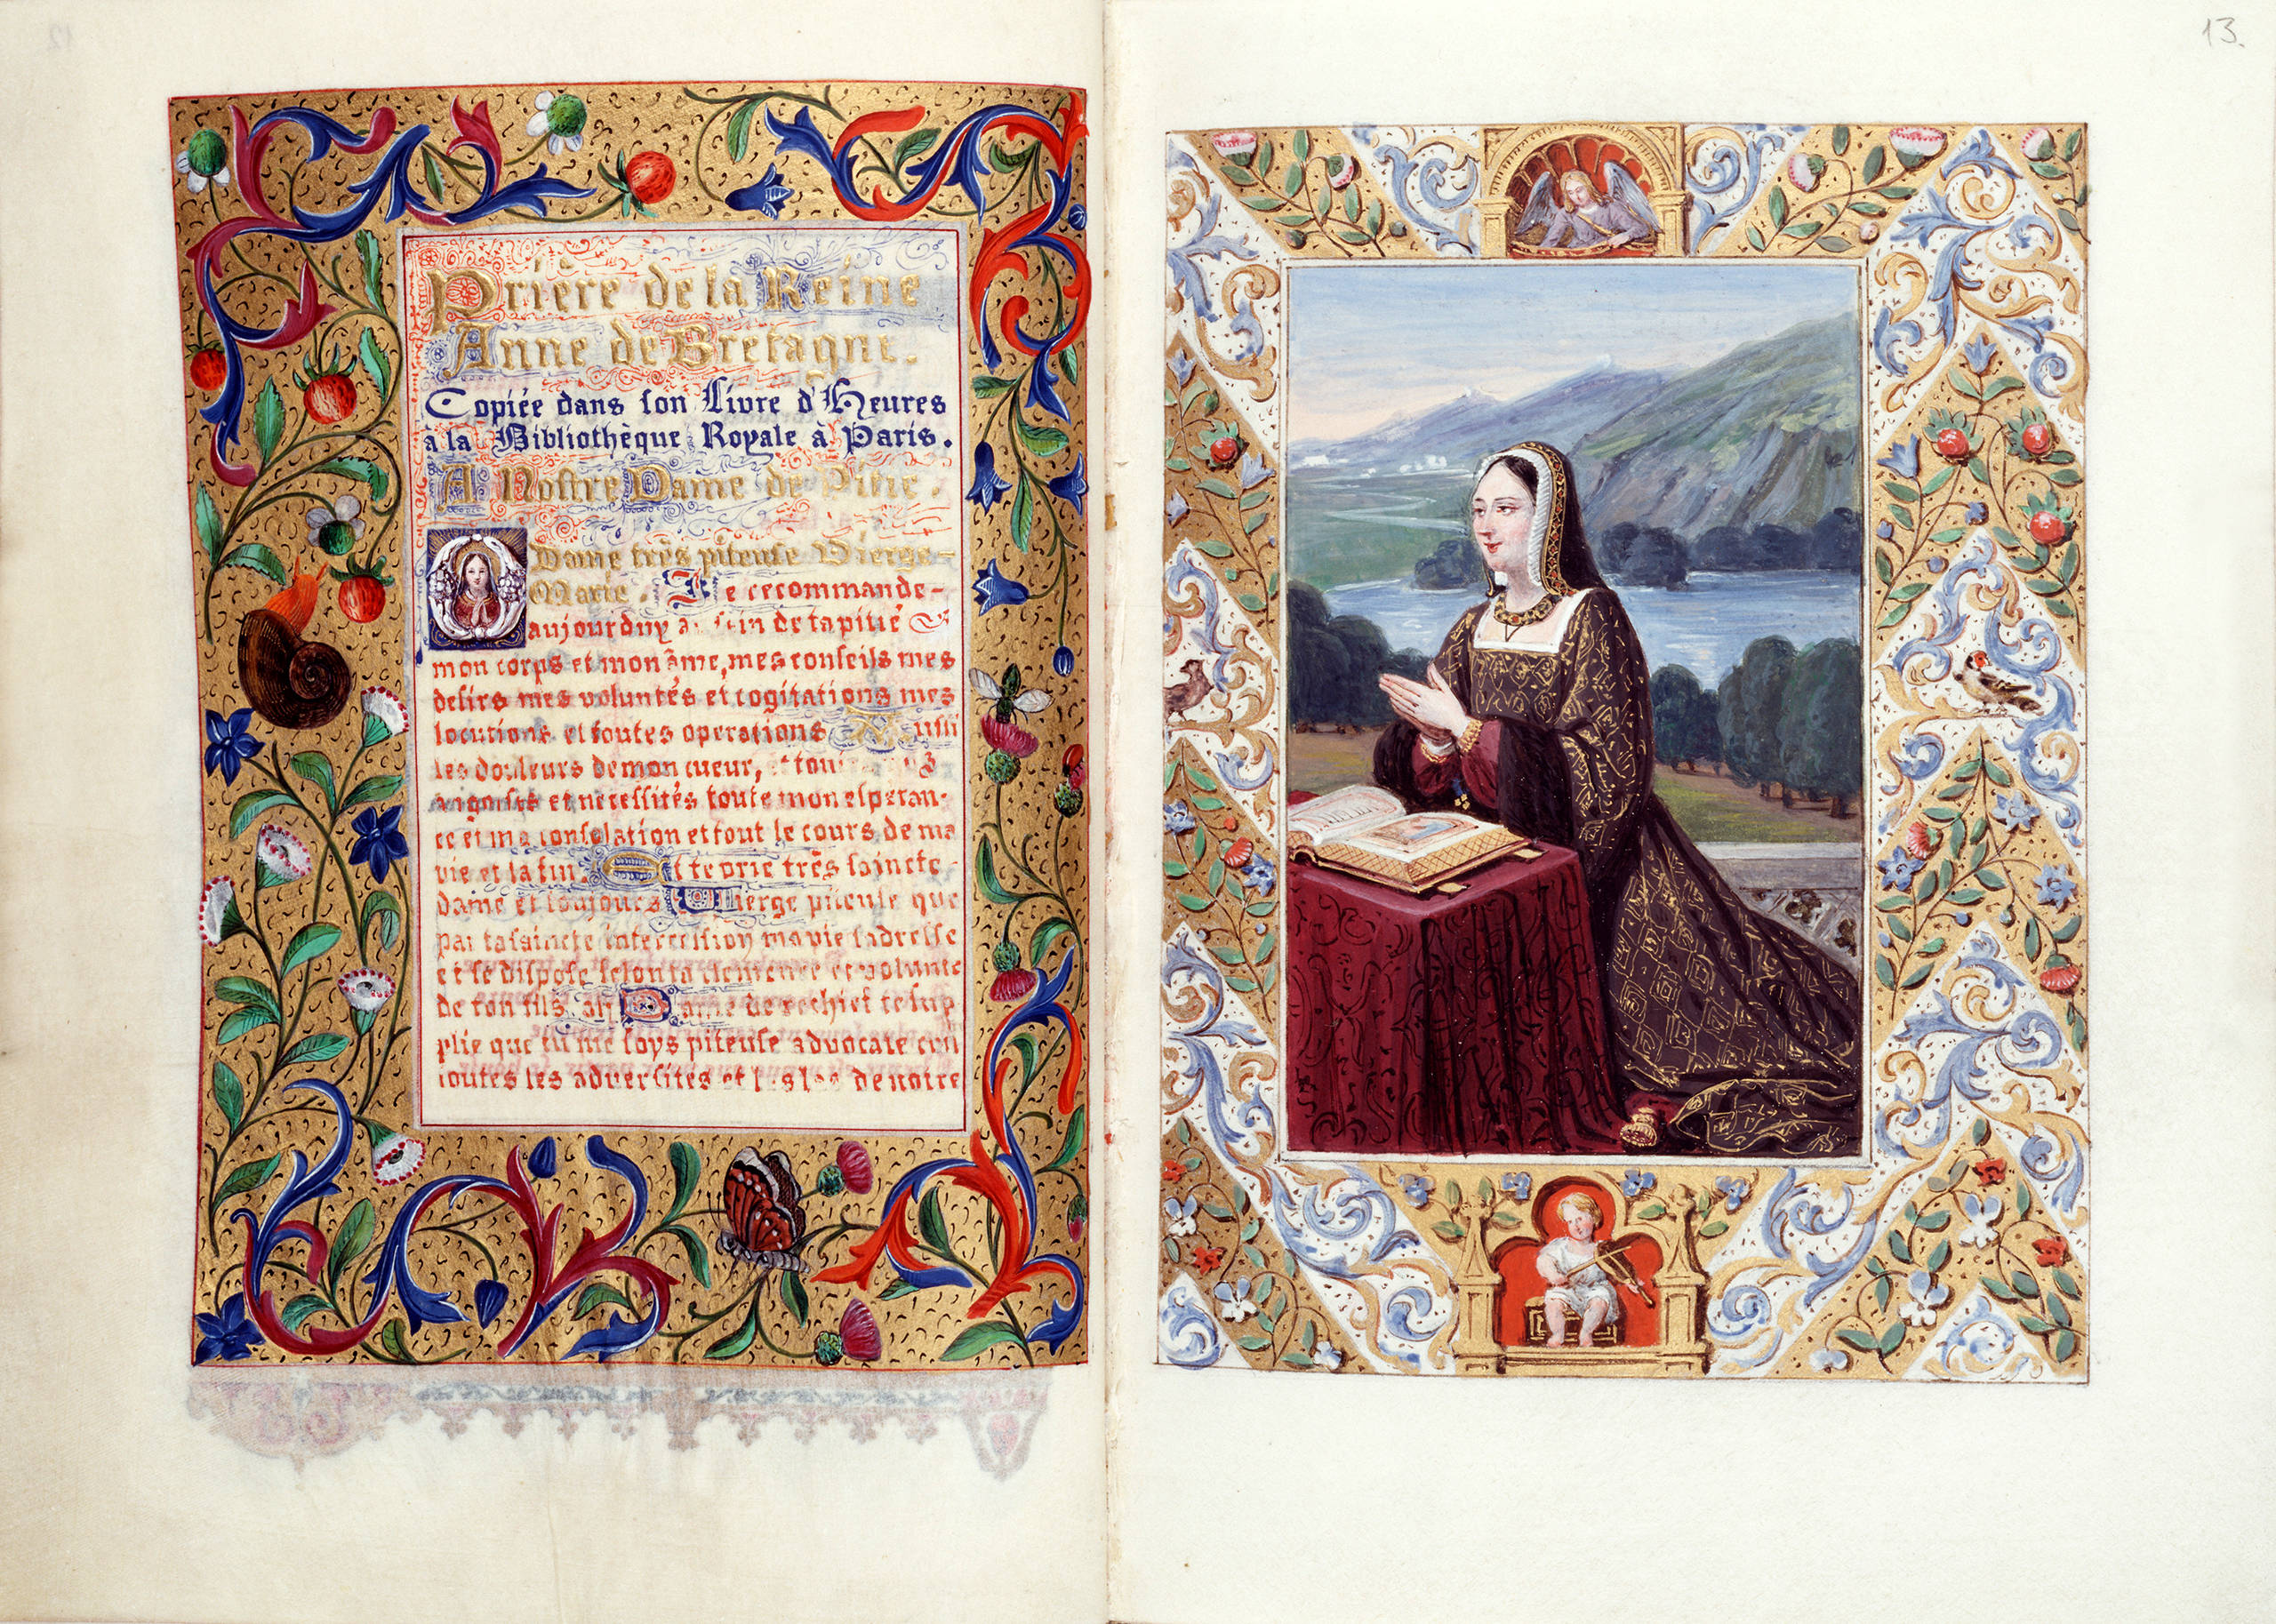 13.
Prière de la Reine
Anne de Bretagne.
Copiée dans son Livre d'Heures
à la Bibliothèque Royale à Paris.
A Nostre Dame de Pitié.
O Dame très piteuse Vierge-
Marie. Je recommande-
aujourduy a sein de ta pitié &
mon corps et mon âme, mes conseils mes
desirs mes voluntés et cogitations mes
locutions et toutes operations Aussi
les douleurs de mon cueur, et
angoises et necessités toute mon esperan-
ce et ma consolation et tout le cours de ma
vie et la fin. Et te prie très saincte
dame et toujours Vierge piteuse que
par ta saincte intercession ma vie sadresse
et se dispose selon ta clemence et volunte
de ton fils. Dame de rechief te sup
plie que tu me soys piteuse advocate en
toutes les adversites et de notre